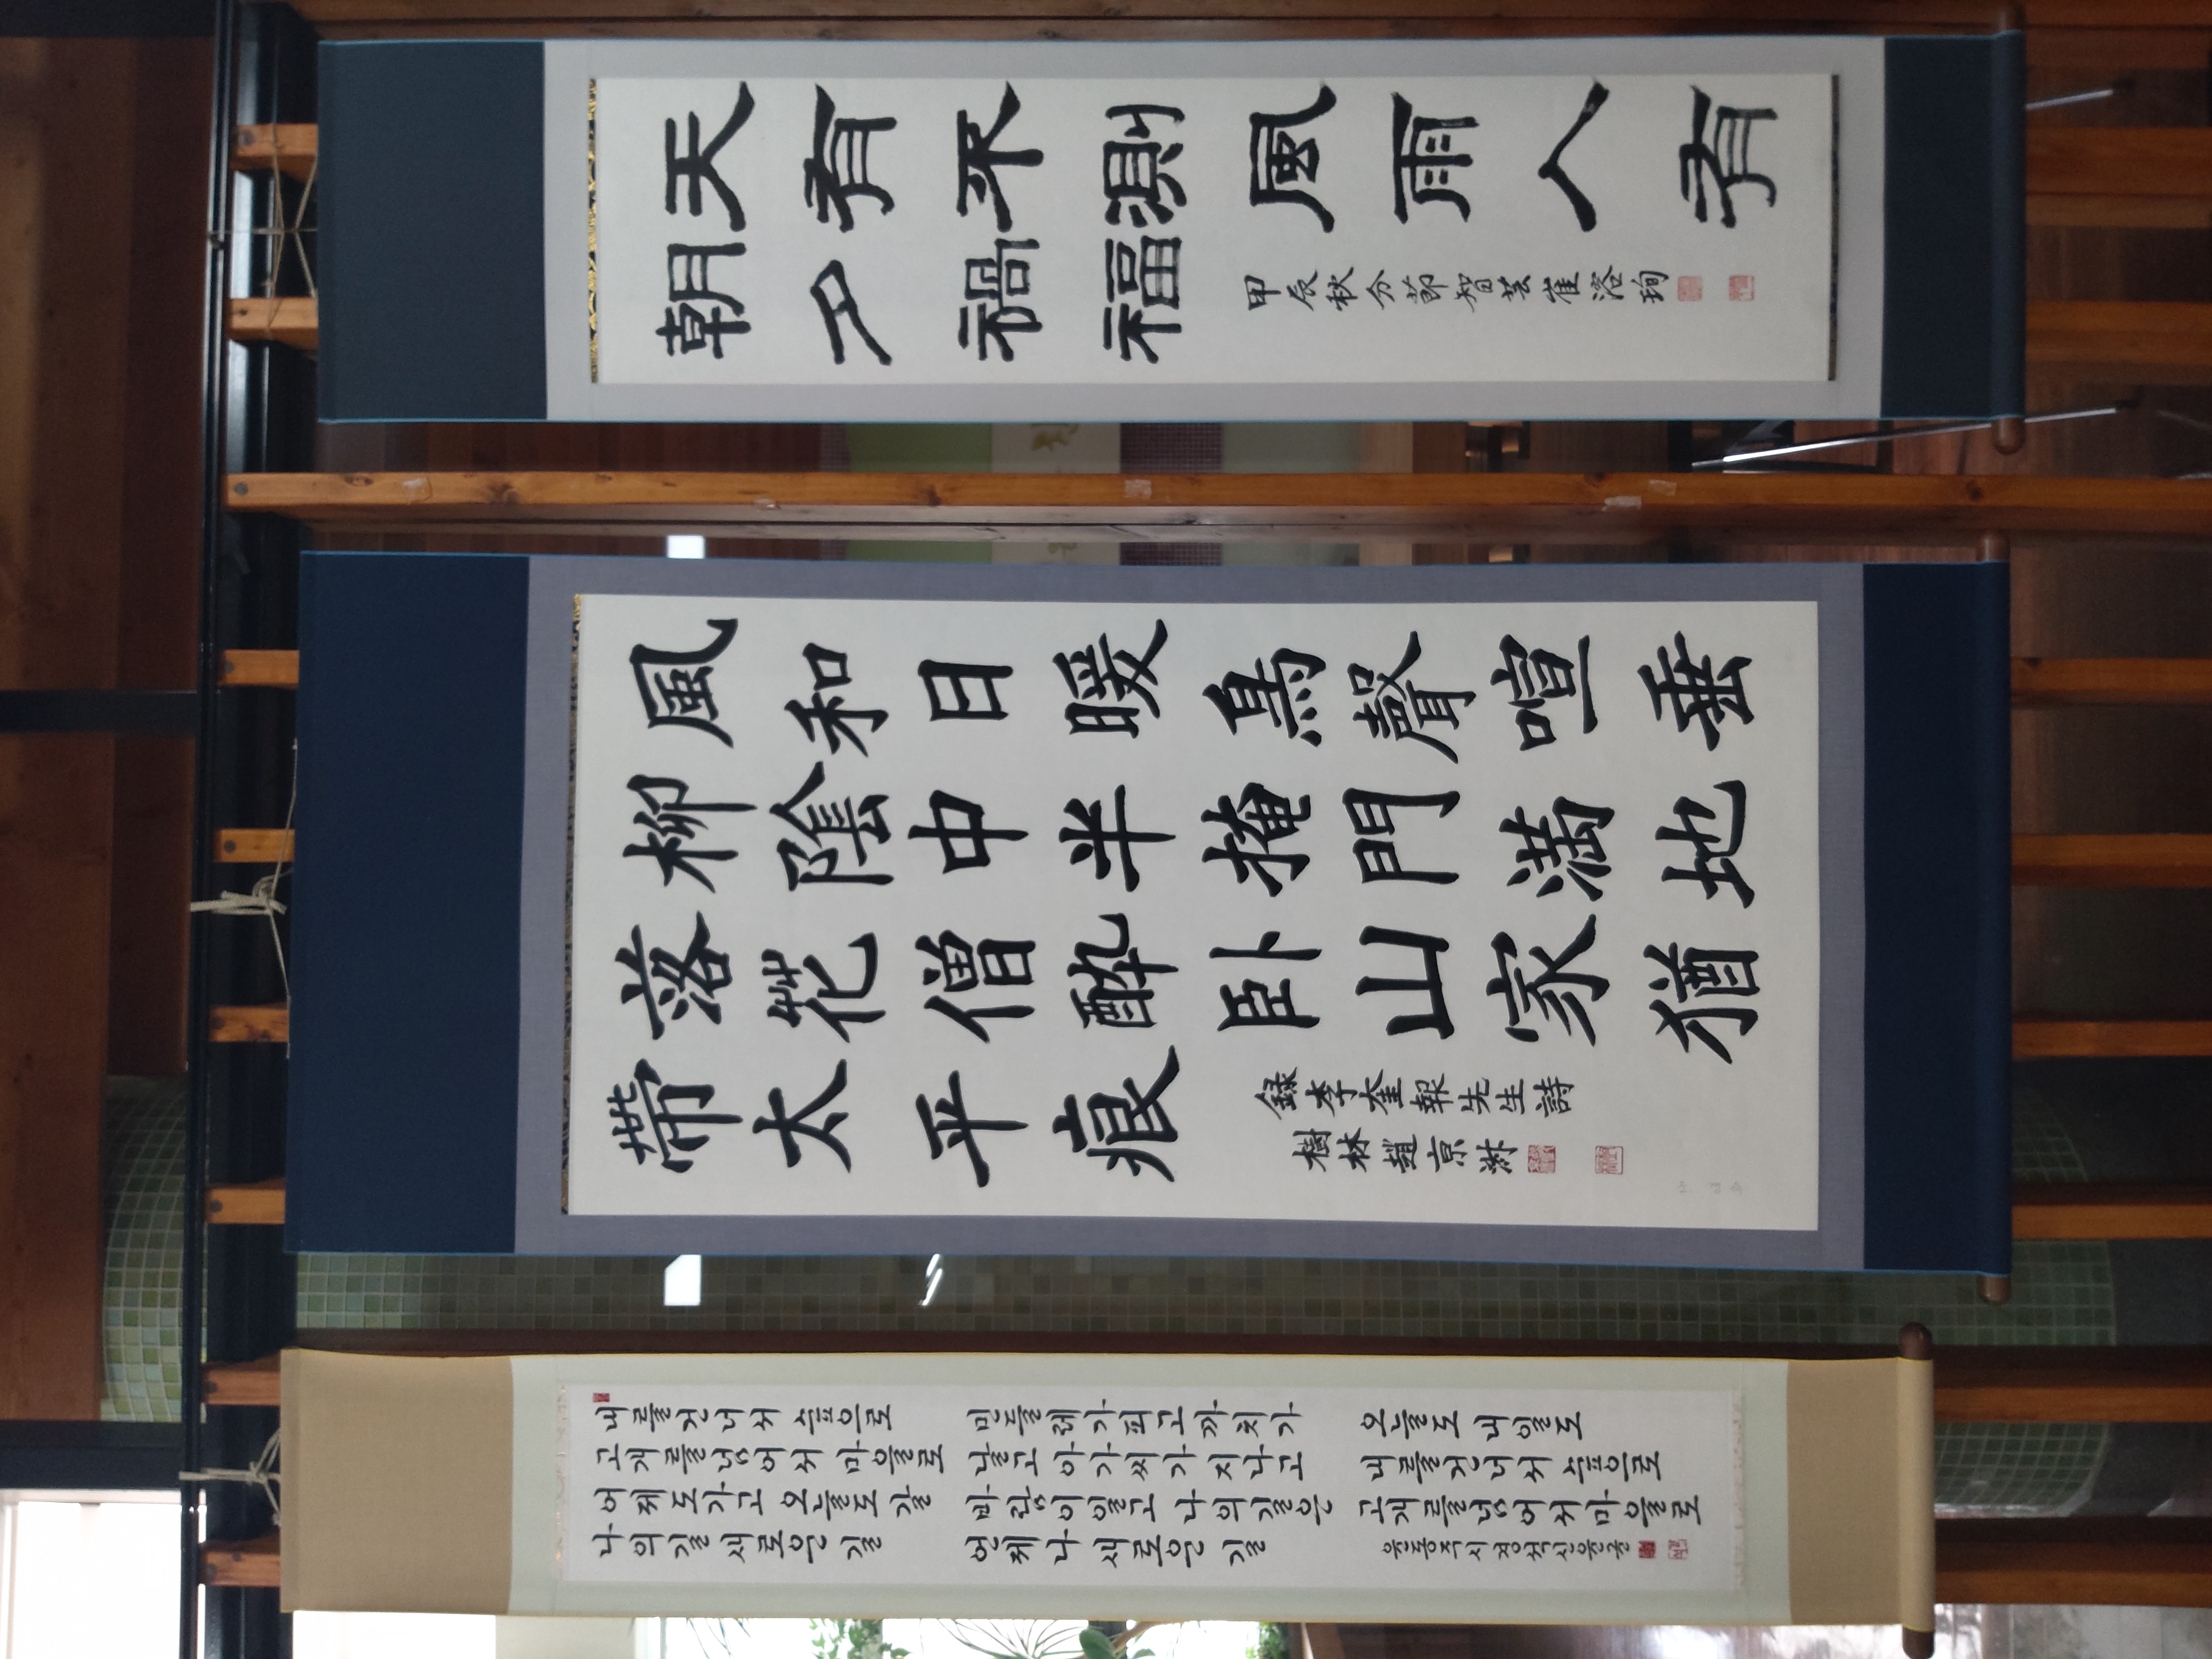 天有不測風雨人有
朝夕禍福
甲辰秋分節智芸崔溶珣
風和日暖鳥聲喧垂
柳陰中半掩門滿地
落花僧醉臥山家猶
帶太平痕
錄李奎報先生詩
樹林趙京淑
조경숙
내를건너서 숲으로
고개를넘어서 마을로
어제도가고 오늘도 갈
나의길 새로운 길
민들레가피고까치가
날고 아가씨가 지나고
바람이일고 나의길은
언제나 새로운 길
오늘도 내일도
내를건너서 숲으로
고개를넘어서 마을로
윤동주시